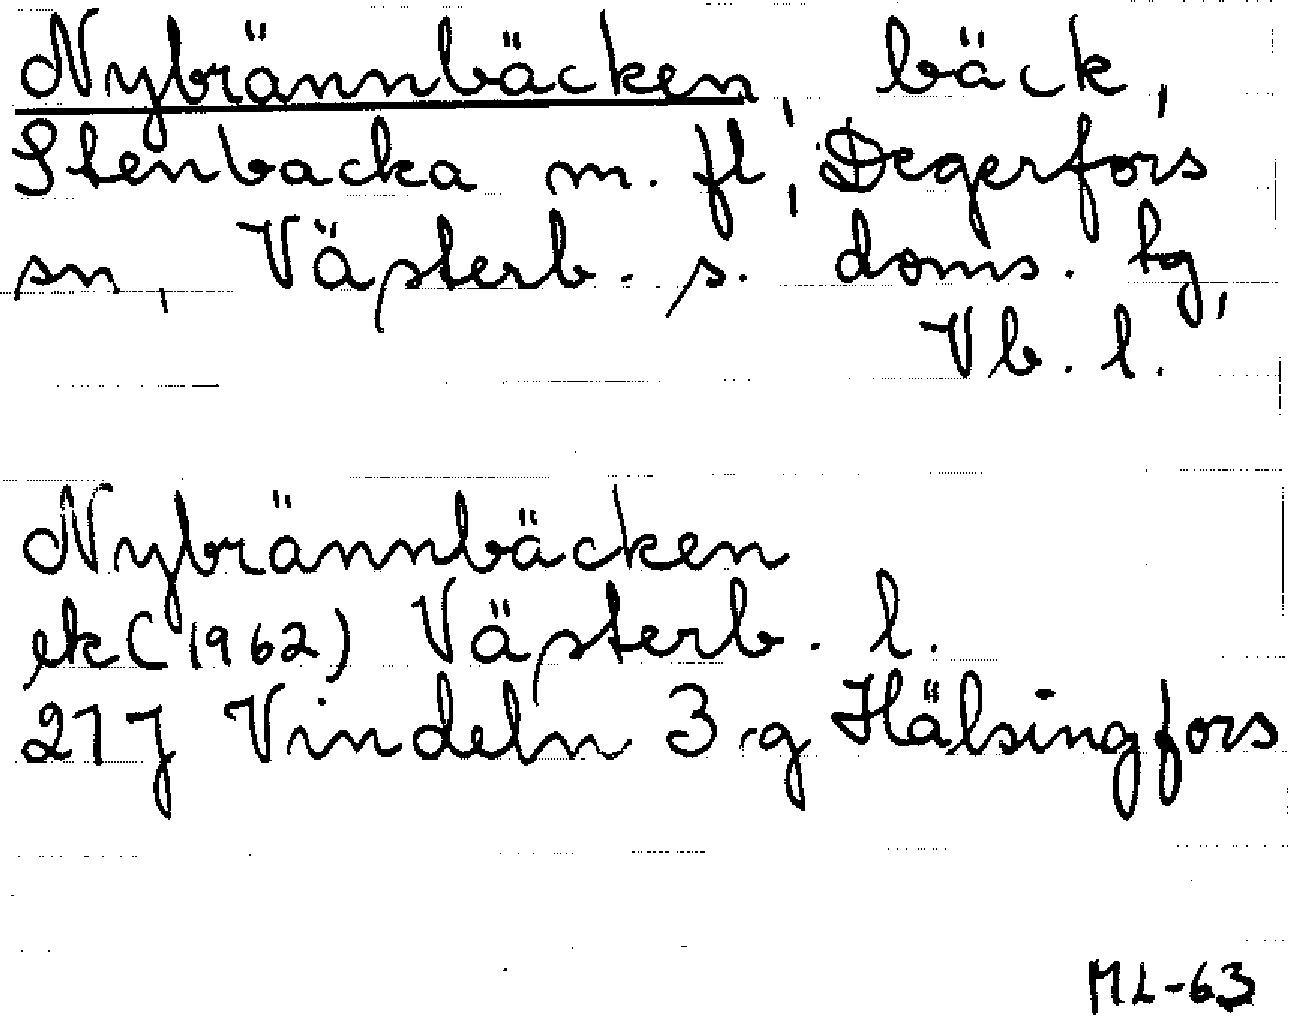 Nybrännbäcken, bäck,
Stenbacka m. fl, Degerfors
sn, Västerb. s. doms. tg,
Vb. l.
Nybrännbäcken
ek (1962) Västerb. l.
21 J Vindeln 3 g Hälsingfors
ML-63